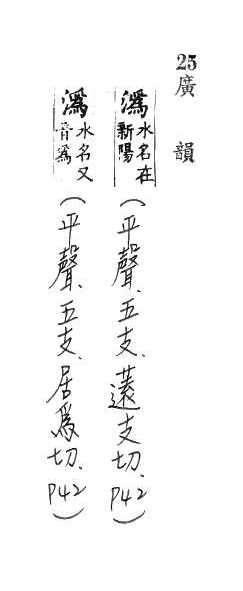 25廣韻
潙水名在新陽（平聲、五支、薳支切、P42）
潙水名又音爲（平聲、五支、居爲切、P42）